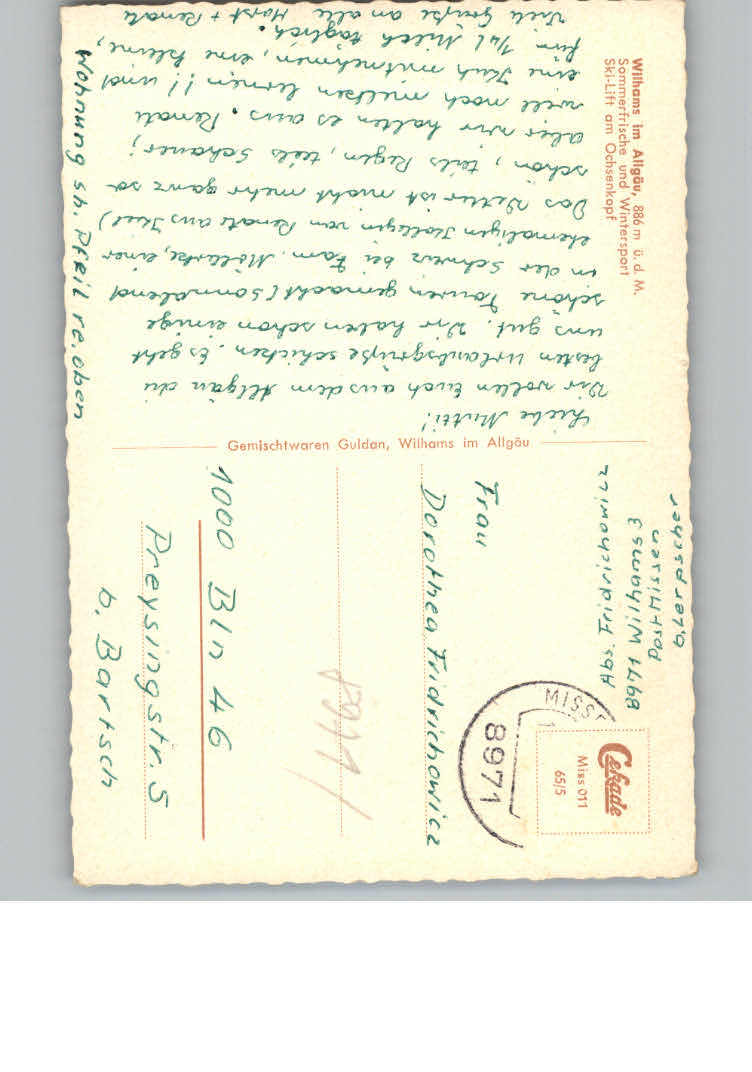 Wilhams im Allgäu, 886 m ü. d. M.
Sommerfrische und Wintersport
Ski-Lift am Ochsenkopf
Liebe Mutti!
Wir wollen Euch aus dem Allgäu die
besten Urlaubsgrüße schicken. Es geht
uns gut. Wir haben schon einige
schöne Touren gemacht (Sonnabend
in der Schweiz bei Fam. einer
ehemaligen Kollegin von Renate aus Kiel)
Das Wetter ist nicht mehr ganz so
schön, teils Regen, teils Schauer;
aber wir halten es aus. Renate
will noch melken lernen!! und
eine Kuh mitnehmen, eine kleine,
für 1/4 l Milch täglich.
Viele Grüße an alle Horst + Renate
Wohnung sh. Pfeil re. oben
Gemischtwaren Guldan, Wilhams im Allgäu
Abs. Fridrichowicz
8971 Wilhams 3
Post Missen
MISS
8971
Cekade
Miss 011
65/5
Frau
Dorothea Fridrichowicz
1000 Bln 46
Preysingstr. 5
b. Bartsch